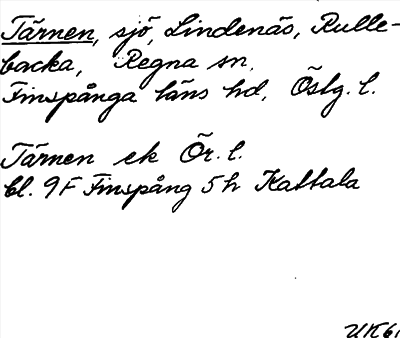 Tärnen, sjö, Lindenäs, Rulle-
backa, Regna sn,
Finspånga läns hd, Östg. l.
Tärnen ek Ör. l.
bl. 9F Finspång 5h Kattala
UK 61